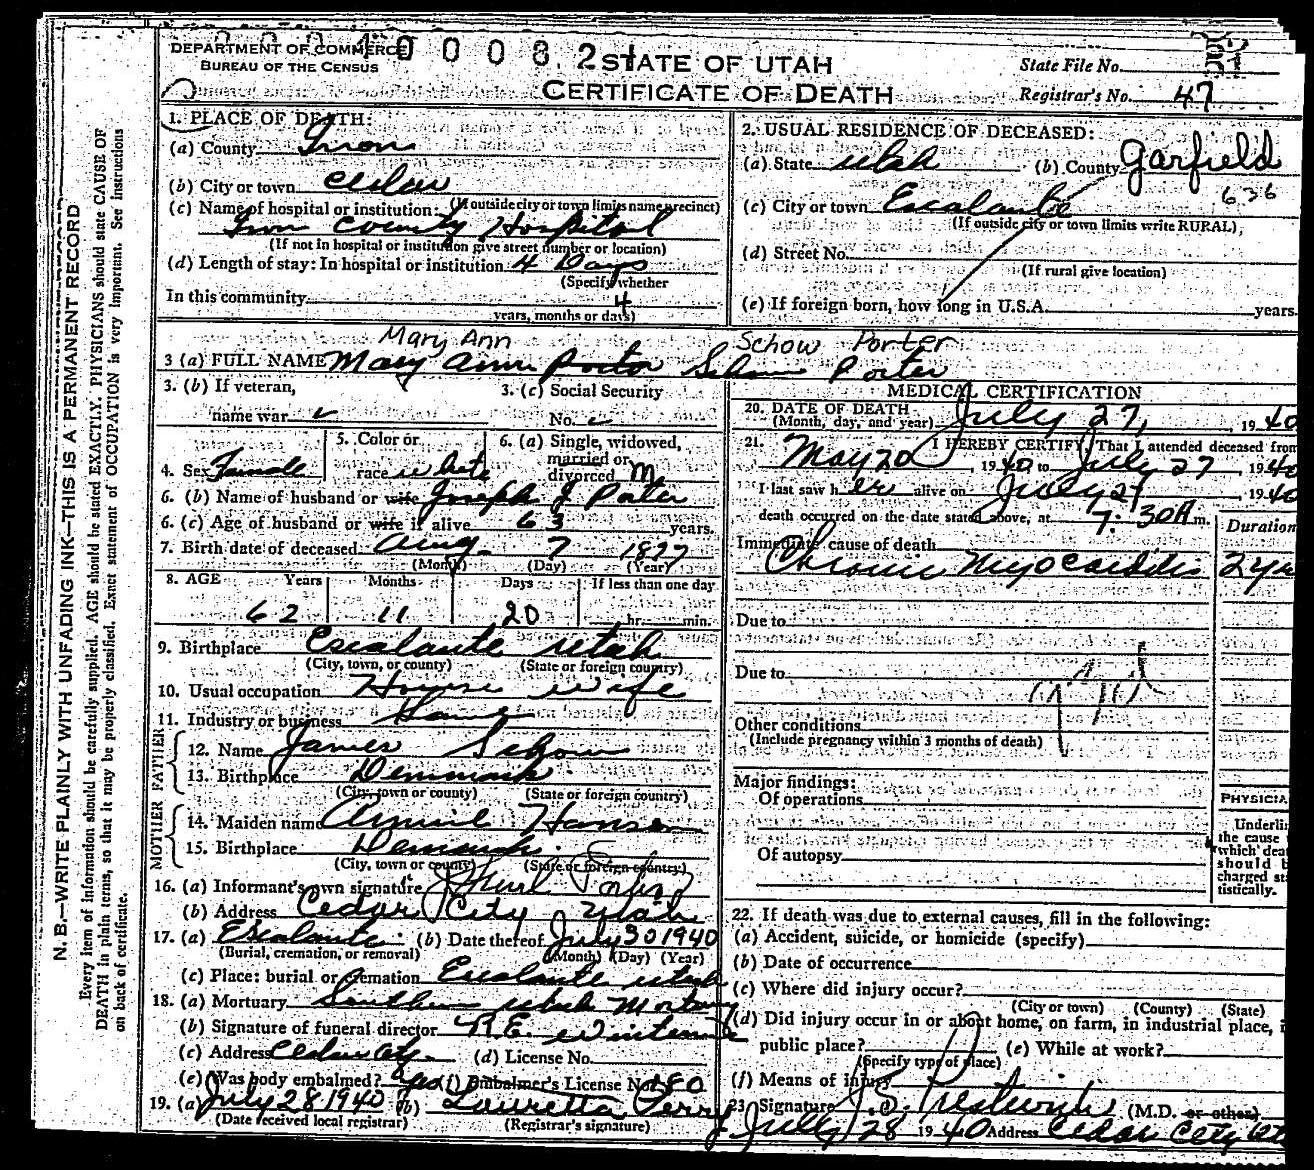 DEPARTMENT OF COMMERCE
BUREAU OF THE CENSUS
STATE OF UTAH
CERTIFICATE OF DEATH
State File No.
Registrar's No. 47
1. PLACE OF DEATH:
(a) County Iron
(b) City or town Cedar
(If outside city or town limits name precinct)
(c) Name of hospital or institution:
Iron County Hospital
(If not in hospital or institution give street number or location)
(d) Length of stay: In hospital or institution 4 Days
(Specify whether
In this community 4
years, months or days)
2. USUAL RESIDENCE OF DECEASED:
(a) State Utah (b) County Garfield
636
(c) City or town Escalante
(If outside city or town limits write RURAL)
(d) Street No.
(If rural give location)
(e) If foreign born, how long in U.S.A. years.
Mary Ann Schow Porter
3 (a) FULL NAME Mary Ann Porter Schow Porter
3. (b) If veteran,
name war
3. (c) Social Security
No.
4. Sex Female
5. Color or
race white
6. (a) Single, widowed,
married or
divorced M
6. (b) Name of husband or wife Joseph J Porter
6. (c) Age of husband or wife if alive 63 years.
7. Birth date of deceased Aug. 7 1877
(Month) (Day) (Year)
8. AGE Years Months Days If less than one day
62 11 20 hr. min.
9. Birthplace Escalante Utah
(City, town, or county) (State or foreign country)
10. Usual occupation House wife
11. Industry or business Home
FATHER
12. Name James Schow
13. Birthplace Denmark
(City, town or county) (State or foreign country)
MOTHER
14. Maiden name Hansen
15. Birthplace Denmark
(City, town or county) (State or foreign country)
16. (a) Informant's own signature
(b) Address Cedar City Utah
17. (a) Escalante (b) Date thereof July 30 1940
(Burial, cremation, or removal) (Month) (Day) (Year)
(c) Place: burial or cremation Escalante Utah
18. (a) Mortuary Southern Utah Mortuary
(b) Signature of funeral director R.E.
(c) Address Cedar City (d) License No.
(e) Was body embalmed? yes (f) Embalmer's License No. 180
19. (a) July 28 1940 (b) Lauretta Perry
(Date received local registrar) (Registrar's signature)
MEDICAL CERTIFICATION
20. DATE OF DEATH July 27, 1940
(Month, day, and year)
21. I HEREBY CERTIFY That I attended deceased from
May 20, 1940 to July 27 1940
I last saw her alive on July 27 1940
death occurred on the date stated above, at 7:30 A m.
Duration
Immediate cause of death
Chronic Myocarditis 2 yr
Due to
Due to
Other conditions
(Include pregnancy within 3 months of death)
Major findings:
Of operations
Of autopsy
PHYSICIA
Underlin
the cause
which deat
should b
charged sta
tistically.
22. If death was due to external causes, fill in the following:
(a) Accident, suicide, or homicide (specify)
(b) Date of occurrence
(c) Where did injury occur?
(City or town) (County) (State)
(d) Did injury occur in or about home, on farm, in industrial place, i
public place? (e) While at work?
(Specify type of place)
(f) Means of injury
23 Signature J.S. Prestwich (M.D. or other)
July 28 1940 Address Cedar City Ut
N. B.—WRITE PLAINLY WITH UNFADING INK—THIS IS A PERMANENT RECORD
Every item of information should be carefully supplied. AGE should be stated EXACTLY. PHYSICIANS should state CAUSE OF
DEATH in plain terms, so that it may be properly classified. Exact statement of OCCUPATION is very important. See instructions
on back of certificate.